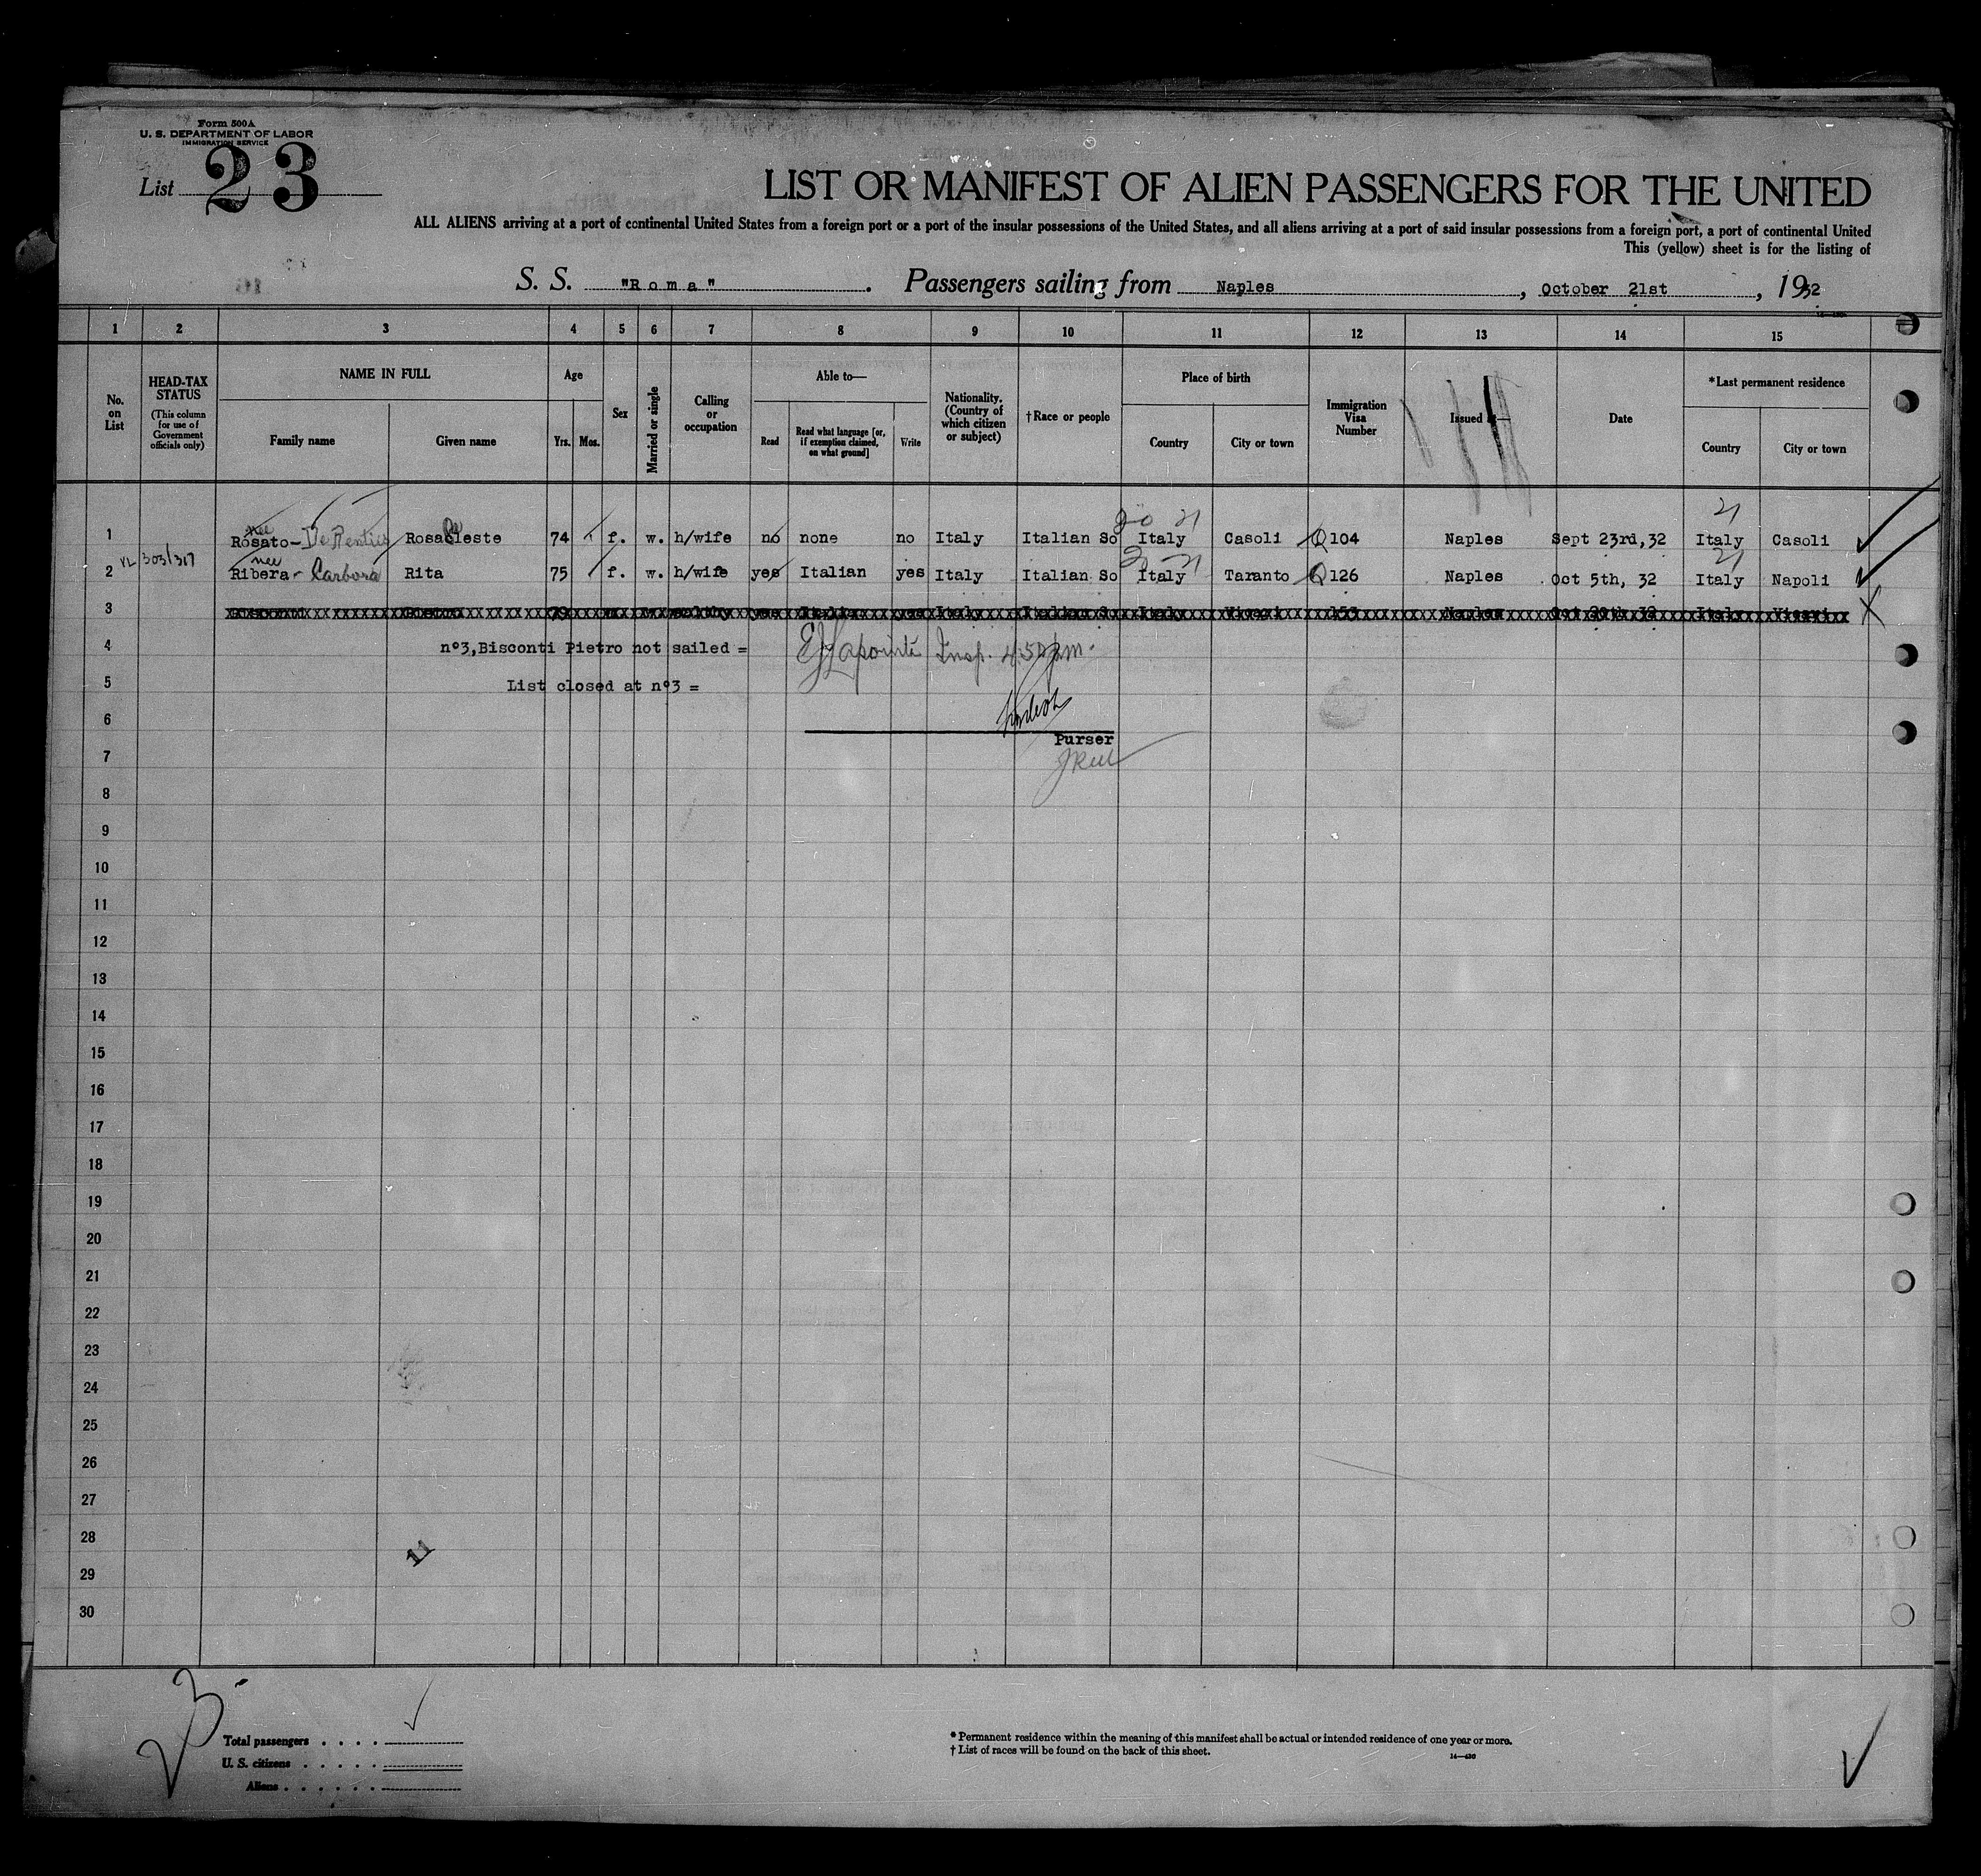 Form 500A
U. S. DEPARTMENT OF LABOR
IMMIGRATION SERVICE
List 23
LIST OR MANIFEST OF ALIEN PASSENGERS FOR THE UNITED
ALL ALIENS arriving at a port of continental United States from a foreign port or a port of the insular possessions of the United States, and all aliens arriving at a port of said insular possessions from a foreign port, a port of continental United
This (yellow) sheet is for the listing of
S. S. "Roma". Passengers sailing from Naples, October 21st, 1932
1 2 3 4 5 6 7 8 9 10 11 12 13 14 15
No. on List
HEAD-TAX STATUS
(This column for use of Government officials only)
NAME IN FULL
Family name
Given name
Age
Yrs. Mos.
Sex
Married or single
Calling or occupation
Able to—
Read
Read what language [or, if exemption claimed, on what ground]
Write
Nationality. (Country of which citizen or subject)
†Race or people
Place of birth
Country
City or town
Immigration Visa Number
Issued at—
Date
*Last permanent residence
Country
City or town
20 21 21
nee
1 Rosato- Rosa Celeste 74 f. w. h/wife no none no Italy Italian So Italy Casoli Q 104 Naples Sept 23rd,32 Italy Casoli
nee 21 21
2 303/317 Ribera- Carbora Rita 75 f. w. h/wife yes Italian yes Italy Italian So Italy Taranto Q 126 Naples Oct 5th, 32 Italy Napoli
3 Bisconti Pietro 79 m. yes Italian yes Italy Italian So Italy 153 Naples Oct 20th 32 Italy
4 nº3,Bisconti Pietro not sailed = EJ Lapointe Insp. 4:50 pm.
5 List closed at nº3 =
6
Purser
7
8
9
10
11
12
13
14
15
16
17
18
19
20
21
22
23
24
25
26
27
28
11
29
30
3
Total passengers . . . .
U. S. citizens . . . . .
Aliens . . . . . .
* Permanent residence within the meaning of this manifest shall be actual or intended residence of one year or more.
† List of races will be found on the back of this sheet.
14—430